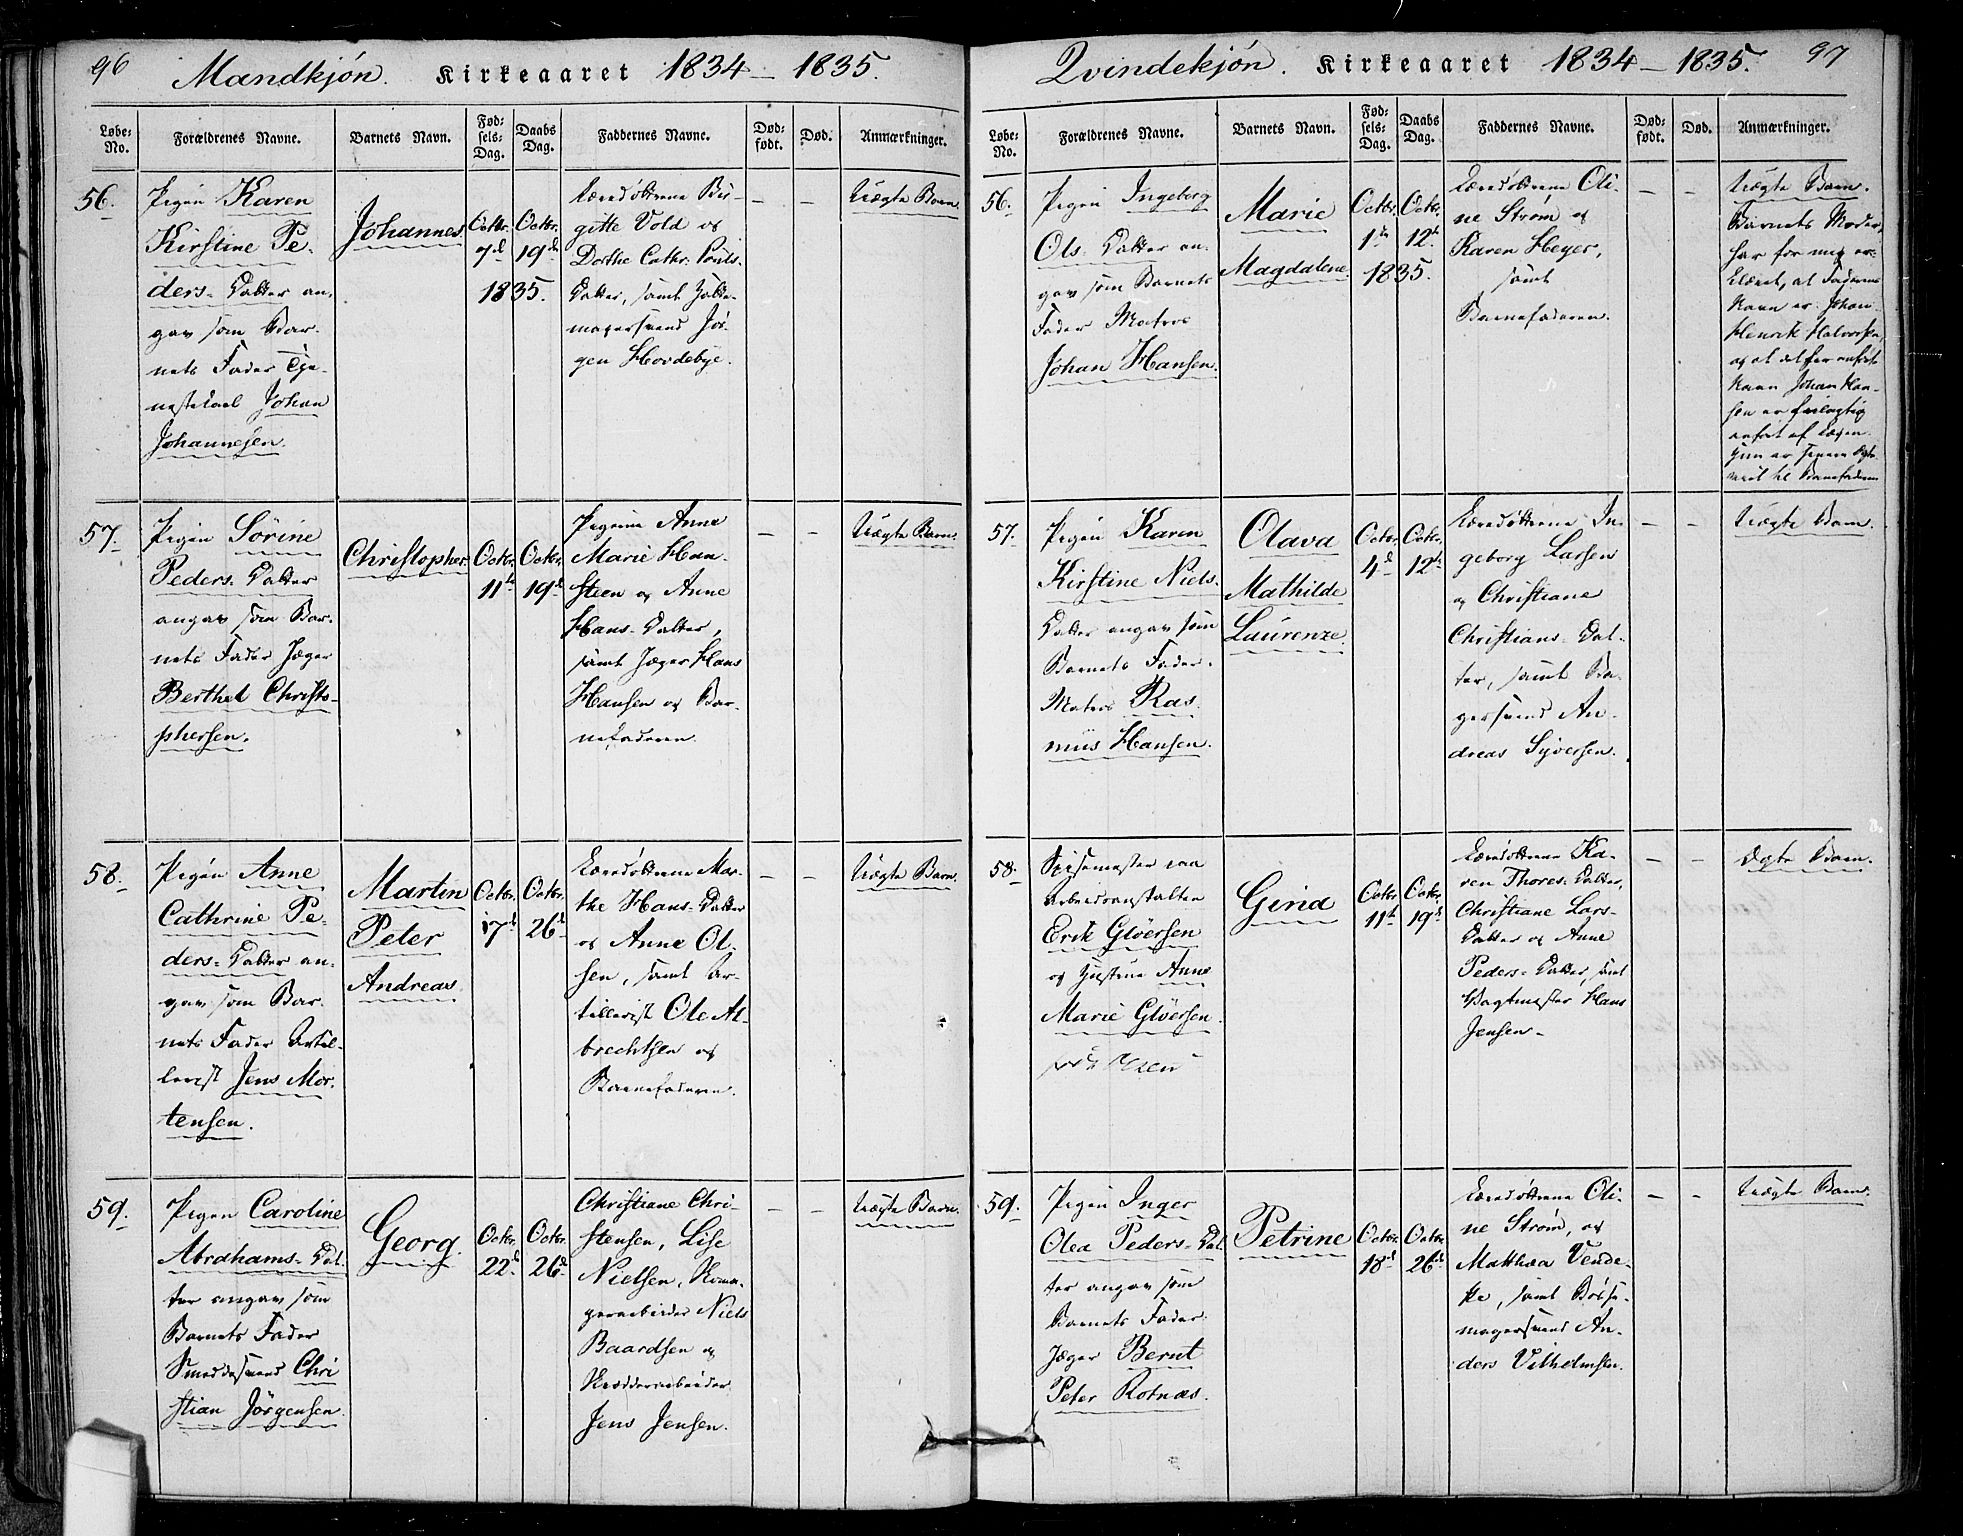 96 Mandkjön. Kirkeaaret 1834 – 1835.
Løbe-No. Forældrenes Navne. Barnets Navn. Fød-sels-Dag. Daabs Dag. Faddernes Navne. Død-født. Død. Anmærkninger.
56.
Pigen Karen
Kirstine Pe-
ders-Datter an-
gav som Bar-
nets Fader Tje-
nestekarl Johan
Johannesen.
Johannes
Octbr.
7d
1835.
Octbr.
19de
Læredöttrene Bir-
gitte Vold og
Dorthe Cathr: Pouls-
Datter, samt
magersvend Jör-
gen Hovdebye.
– –
Uægte Barn.
57.
Pigen Sörine
Peders-Datter
angav som Bar-
nets Fader Jæger
Berthel Christo-
phersen.
Christopher.
Octbr.
11te
Octbr.
19d
Pigerne Anne
Marie Han-
steen og Anne
Hans-Datter,
samt Jæger Hans
Hansen og Bar-
nefaderen.
– –
Uægte Barn.
58.
Pigen Anne
Cathrine Pe-
ders-Datter an-
gav som Bar-
nets Fader Artil-
lerist Jens Mor-
tensen.
Martin
Peter
Andreas
Octbr.
17d
Octbr.
26d
Læredöttrene Mar-
the Hans-Datter
og Anne Ol-
sen, samt Ar-
tillerist Ole Al-
brechtsen og
Barnefaderen.
– –
Uægte Barn.
59.
Pigen Caroline
Abrahams-Dat-
ter angav som
Barnets Fader
Smeddesvend Chri
stian Jörgensen.
Georg.
Octbr.
22d
Octbr.
26d
Christiane Chri-
stensen, Lise
Nielsen, Skoma-
gerarbeider Niels
Baardsen og
Skredderarbeider
Jens Jensen.
– –
Uægte Barn.
Qvindekjön. Kirkeaaret 1834 – 1835. 97
Løbe-No. Forældrenes Navne. Barnets Navn. Fød-sels-Dag. Daabs Dag. Faddernes Navne. Død-født. Død. Anmærkninger.
56.
Pigen Ingeborg
Ols-Datter an-
gav som Barnets
Fader Matros
Johan Hansen.
Marie
Magdalene.
Octbr.
1te
1835.
Octbr.
12te
Læredöttrene Oli-
ne Ström og
Karen Heyer,
samt
Barnefaderen.
– –
Uægte Barn.
Barnets Moder
har for mig er-
klæret, at Faderens
Navn er Johan
Henrik Halvorsen,
og at det før anførte
Navn Johan Han-
sen er feilagtig
anført af Lægen.
Hun er senere ægte-
viet til Barnefaderen
57.
Pigen Karen
Kirstine Niels-
Datter angav som
Barnets Fader
Matros Ras-
mus Hansen.
Olava
Mathilde
Laurenze
Octbr.
4d
Octbr.
12te
Læredöttrene In-
geborg Larsen
og Christiane
Christians-Dat-
ter, samt Ba-
gersvend An-
dreas Syversen.
– –
Uægte Barn.
58.
Spisemester ved
Arbeidsanstalten
Erik Glöersen
og Hustrue Anne
Marie Glöersen.
Gina
Octbr.
11te
Octbr.
19d
Læredöttrene Ka-
ren Thores-Datter,
Christiane Lars-
Datter og Anne
Peders-Datter, samt
Vagtmester Hans
Jensen.
– –
Ægte Barn.
59.
Pigen Inger
Olea Peders-Dat
ter angav som
Barnets Fader
Jæger Bernt
Peter Rotnæs.
Petrine
Octbr.
18d
Octbr.
26de
Læredöttrene Oli-
ne Ström, og
Matthæa Vende-
ke, samt Bösse-
magersvend An-
ders Vilhelmsen.
– –
Uægte Barn.